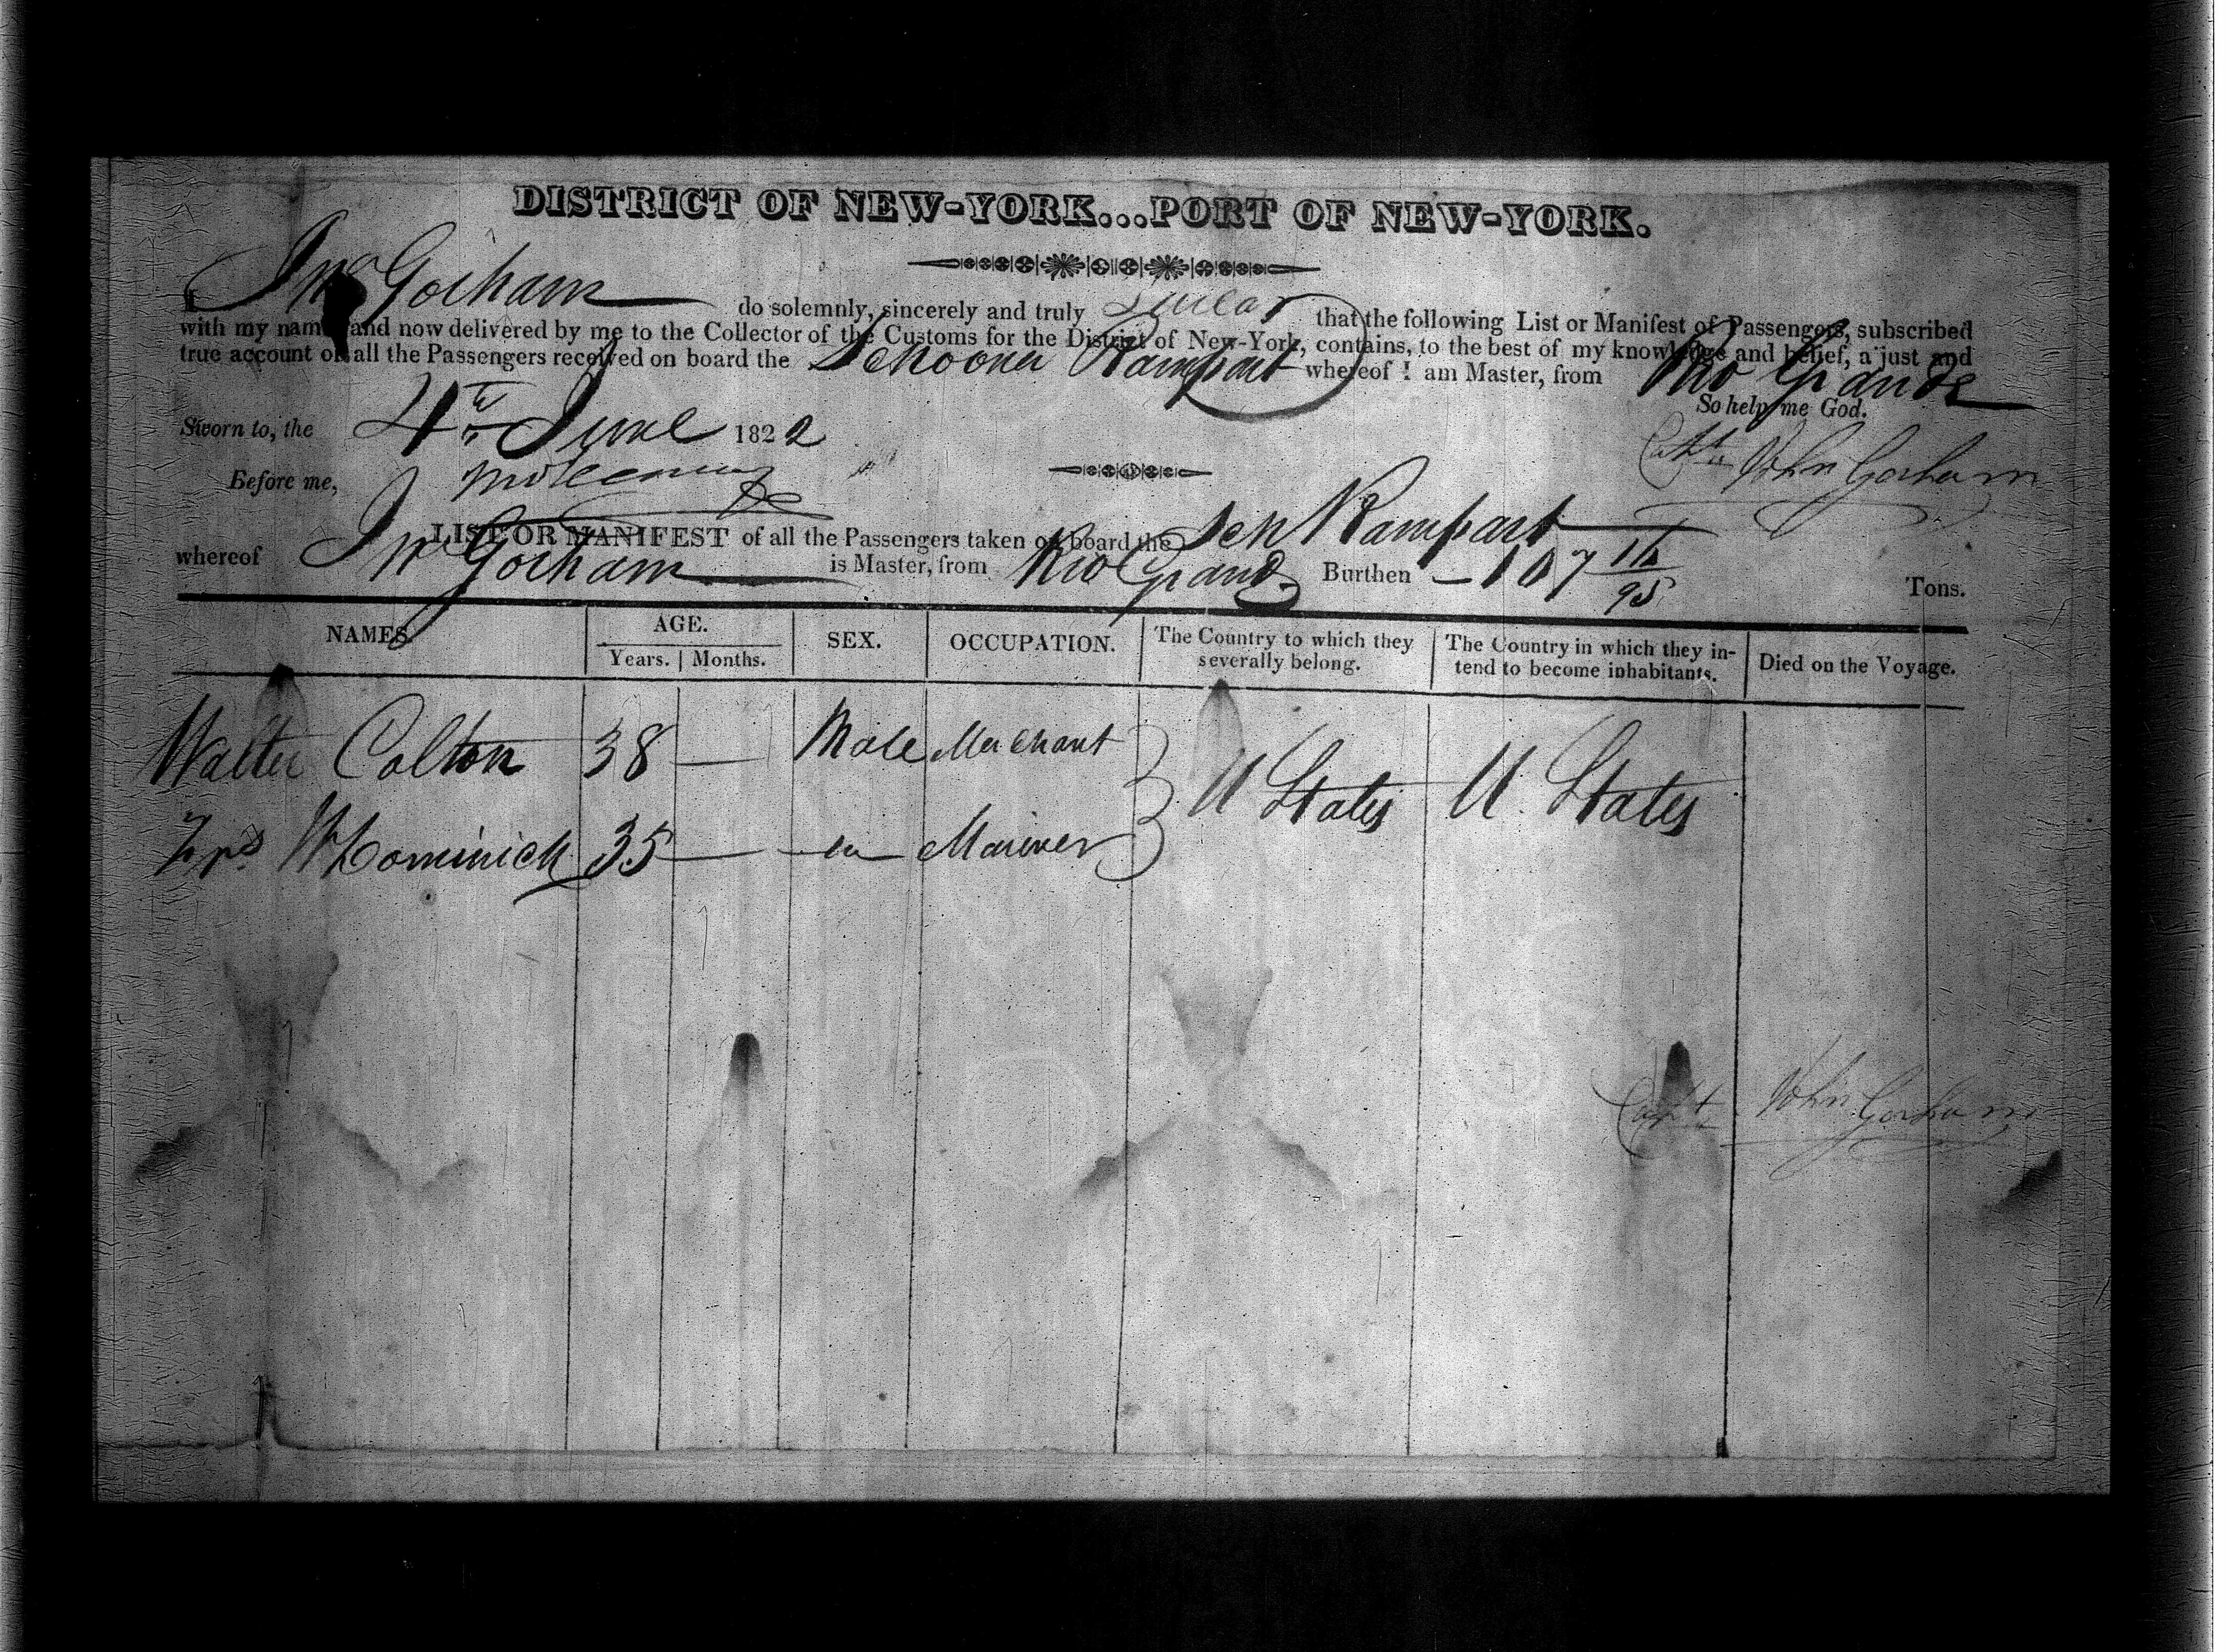 DISTRICT OF NEW-YORK...PORT OF NEW-YORK.
I Jno Gorham do solemnly, sincerely and truly swear that the following List or Manifest of Passengers, subscribed
with my name and now delivered by me to the Collector of the Customs for the District of New-York, contains, to the best of my knowledge and belief, a just and
true account of all the Passengers received on board the Schooner Rampart whereof I am Master, from Rio Grande
So help me God.
Sworn to, the 4th June 1822
Captn John Gorham
Before me,
LIST OR MANIFEST of all the Passengers taken on board the Sch Rampart
whereof Jno Gorham is Master, from Rio Grande Burthen 107 /95 Tons.
NAMES. AGE. SEX. OCCUPATION. The Country to which they severally belong. The Country in which they in-tend to become inhabitants. Died on the Voyage.
Years. Months.
Walter Colton 38 — Male Merchant U States U. States
35 — Mariner
Captn John Gorham